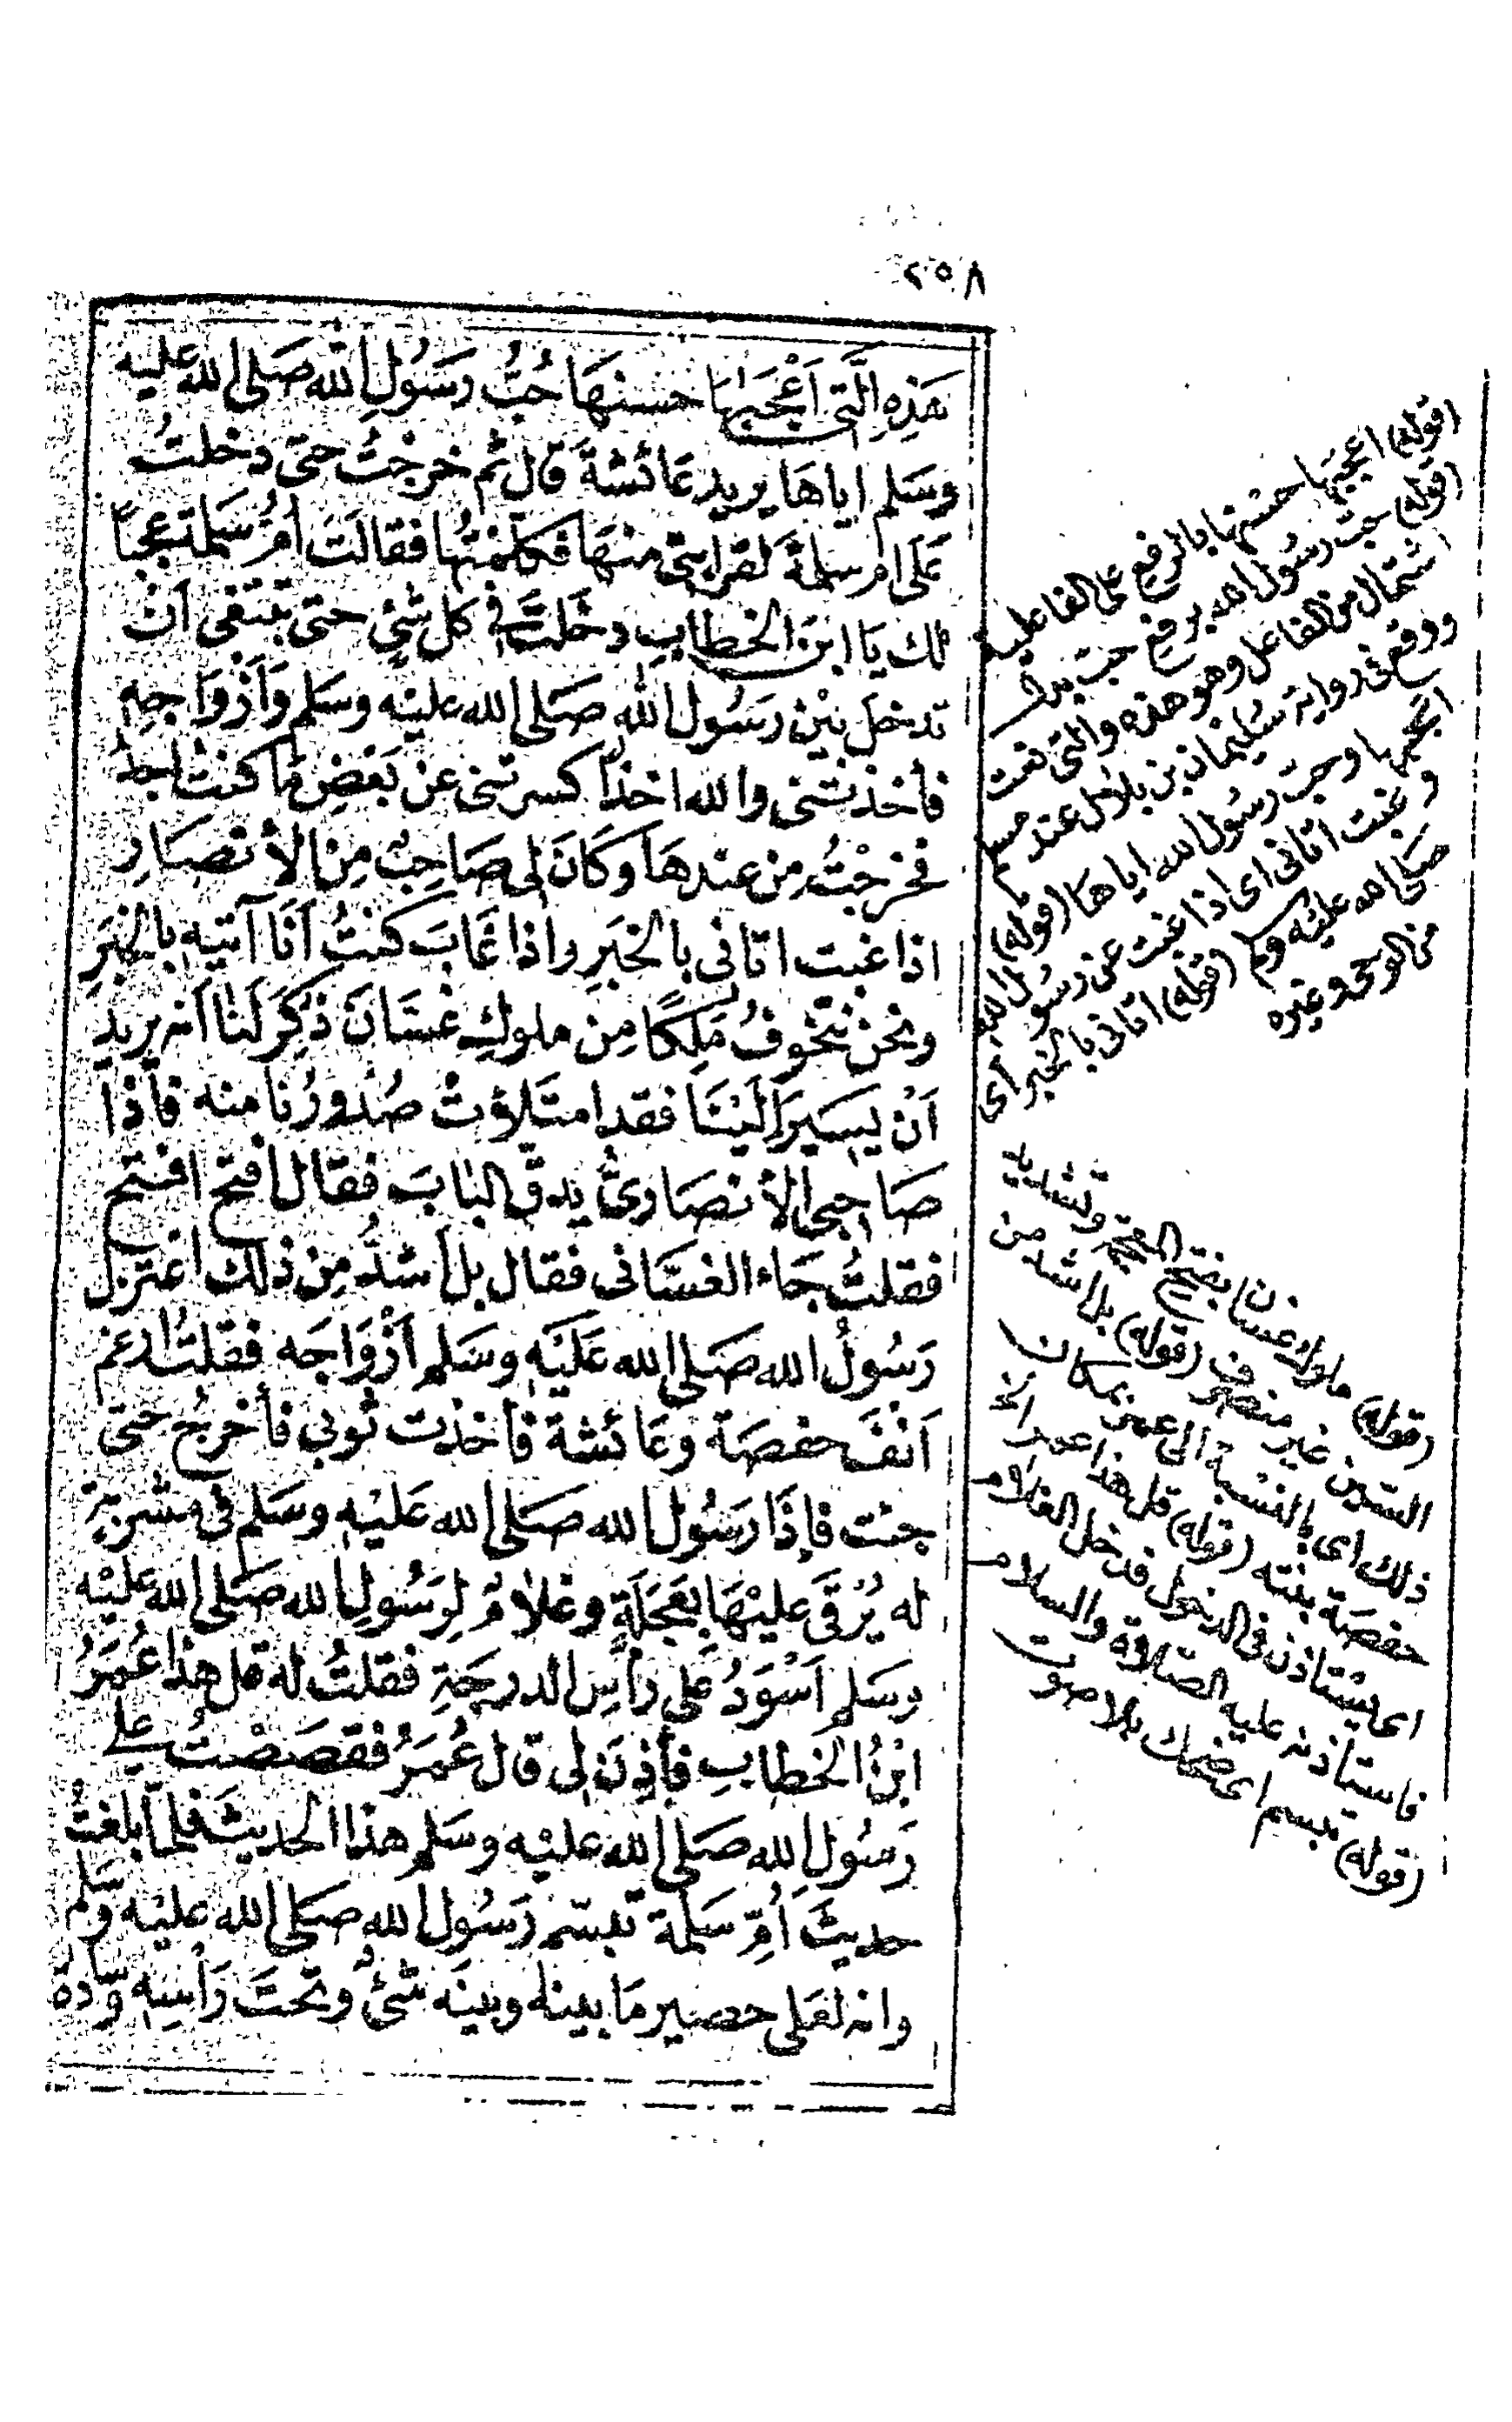 ٢٥٨
هَذِهِ الَّتِى اَعْجَبَهَا حسنهَا حُبُّ رَسُولِ اللّٰه صَلى الله عَليه
وسَلم اياهَا يريد عَائشةَ قال ثم خرجتُ حتى دخلتُ
عَلَى ام سلمةَ لقرابتى منهَا فكلمتُها فقالَت امُّ سَلمة عجبًا
لك يَا ابنَ الخطابِ دخَلتَ فى كل شئٍ حتى تبتغى اَنْ
تدخلَ بَيْن رَسُول الله صَلى الله عليْه وسَلم وَاَزْوَاجِهِ
فأخذتنى والله اخذًا كسرتنى عن بَعْضِ مَا كنت اجدُ
فخرجْتُ مِن عندهَا وَكَانَ لى صَاحِبٌ مِنَ الأنصَارِ
اذا غبت اتانى بالخبَرِ واذا غَابَ كنتُ اَنَا آتيهِ بالخبَرِ
ونحنُ نتخوفُ مَلِكًا مِن ملوكِ غسَانَ ذُكِرَ لَنَا اَنه يريد
اَنْ يسيرَ اِلَيْنَا فقد امتَلَأَتْ صُدُورُنَا منه فاِذَا
صَاحِبى الأنصَارىُّ يدقّ البَابَ فقال افتح افتح
فقلتُ جَاء الغسَّانى فقال بل اَشدُّ مِن ذلك اعتزل
رَسُولُ الله صَلى الله عَليْه وسَلم اَزْوَاجَه فقلتُ رغم
اَنْفَ حفصَة وعَائشة فاخذت ثوبى فأخرُج حتى
جئت فاِذَا رَسُول الله صَلى الله عَليْهِ وسَلم فى مشربَةٍ
له يُرْقَى عليْهَا بِعَجَلَةٍ وغلاَمٌ لِرَسُولِ الله صَلى الله عَليْه
وسَلم اَسْوَدُ عَلى رَأسِ الدرجَةِ فقلتُ له قل هذا عُمَرُ
ابْنُ الخَطابِ فأذِنَ لِى قال عُمَرُ فقصَصْتُ على
رَسُولِ الله صَلى الله عليْه وسَلم هذا الحديث فلما بلغتُ
حديثَ اُمِّ سَلمة تبسّم رَسُول الله صَلى الله عليْه وسَلم
وانه لعَلى حصير مَا بينه وبينَه شئٌ وتحتَ رَأسِهِ وسَادة
(قوله) اعجبَها حسنها بالرفع على الفاعلية
(قوله) حب رسُول الله برفع حب بدل
اشتمال من الفاعل وهو هذه والتى نعت
ووقع فى رواية سُليمان بن بلال عند مسلم
اعجبها وحب رسُول الله اياهَا (قوله)
اذا غبت اتانى اى اذا غبت عن رسول الله
صَلى الله عليْه وسلم (قوله) اتانى بالخبر اى
من الوحى وغيره
(قوله) ملوك غسان بفتح المعجمة وتشديد
السين غير منصرف (قوله) بل اشد من
ذلك اى بالنسبة الى عمر بمكان
حفصَة بنته (قوله) قل هذا عمر الخ
اى يستاذن فى الدخول فدخل الغلام
فاستاذنه عليه الصَّلاة والسلام
(قوله) تبسم اى ضحك بلا صوت